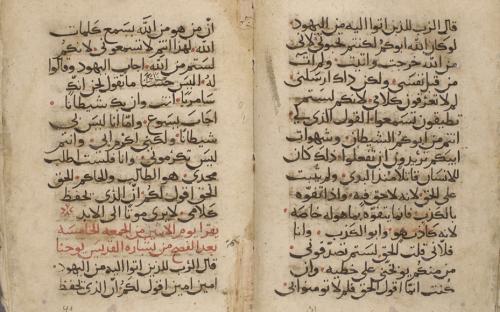 قال الرب للذين اتوا اليه من اليهود
لو كان الله ابوكم لكنتم تحبوني لاني
من الله خرجت واتيت ولم ات
من قبل نفسي ولكن ذاك ارسلني
لم لا تعرفون كلامي لانكم لستم
تطيقون تسمعوا القول الذي لي
انتم من ابوكم الشيطان وشهوات
ابيكم تريدون ان تفعلوا ذلك كان
للانسان قاتلا منذ البدي ولم يثبت
على الحق لانه لا حق فيه واذا تفوه
بالكذب فانما يتفوه بما هو له خاصه
لانه كاذب هو وابو الكذب وانا
فلاني قلت الحق لستم تصدقوني
من منكم يوبخني على خطيه وان
كنت انما اقول الحق فلم لا تومنوا بي
ان من هو من الله يسمع كلمات
الله لهذا انتم لا تسمعوني لانكم
لستم من الله اجاب اليهود وقالوا
له اليس حسنا ما نقول نحن انك
سامريا انت وان بك شيطانا
اجاب يسوع واما انا ليس بي
شيطانا ولكني اكرم ابي وانتم
ليس تكرموني وانا فلست اطلب
مجدي هو الطالب والحاكم الحق
الحق اقول لكم ان الذي يحفظ
كلامي لا يرى موتا الى الابد
يقرا يوم الاثنين من الجمعه الخامسه
بعد الفصح من بشاره القديس يوحنا
قال الرب للذين اتوا اليه من اليهود
امين امين اقول لكم ان الذي يحفظ